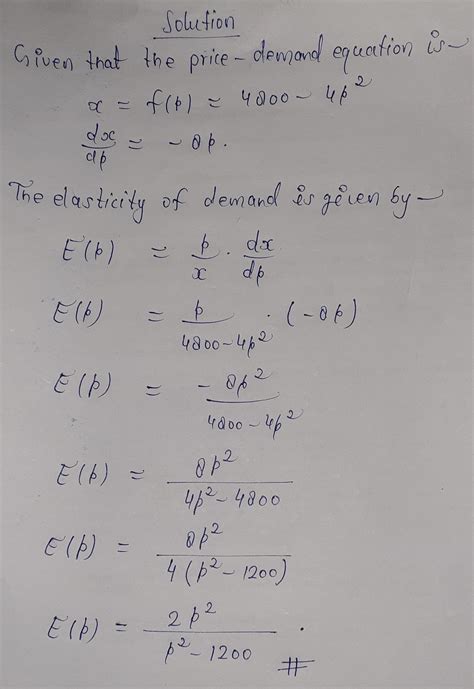 Solution
Given that the price-demand equation is-
x = f(p) = 4800 - 4p²
dx/dp = -8p.
The elasticity of demand is given by-
E(p) = p/x · dx/dp
E(p) = p/(4800-4p²) · (-8p)
E(p) = -8p²/(4800-4p²)
E(p) = 8p²/(4p²-4800)
E(p) = 8p²/(4(p²-1200))
E(p) = 2p²/(p²-1200) . #